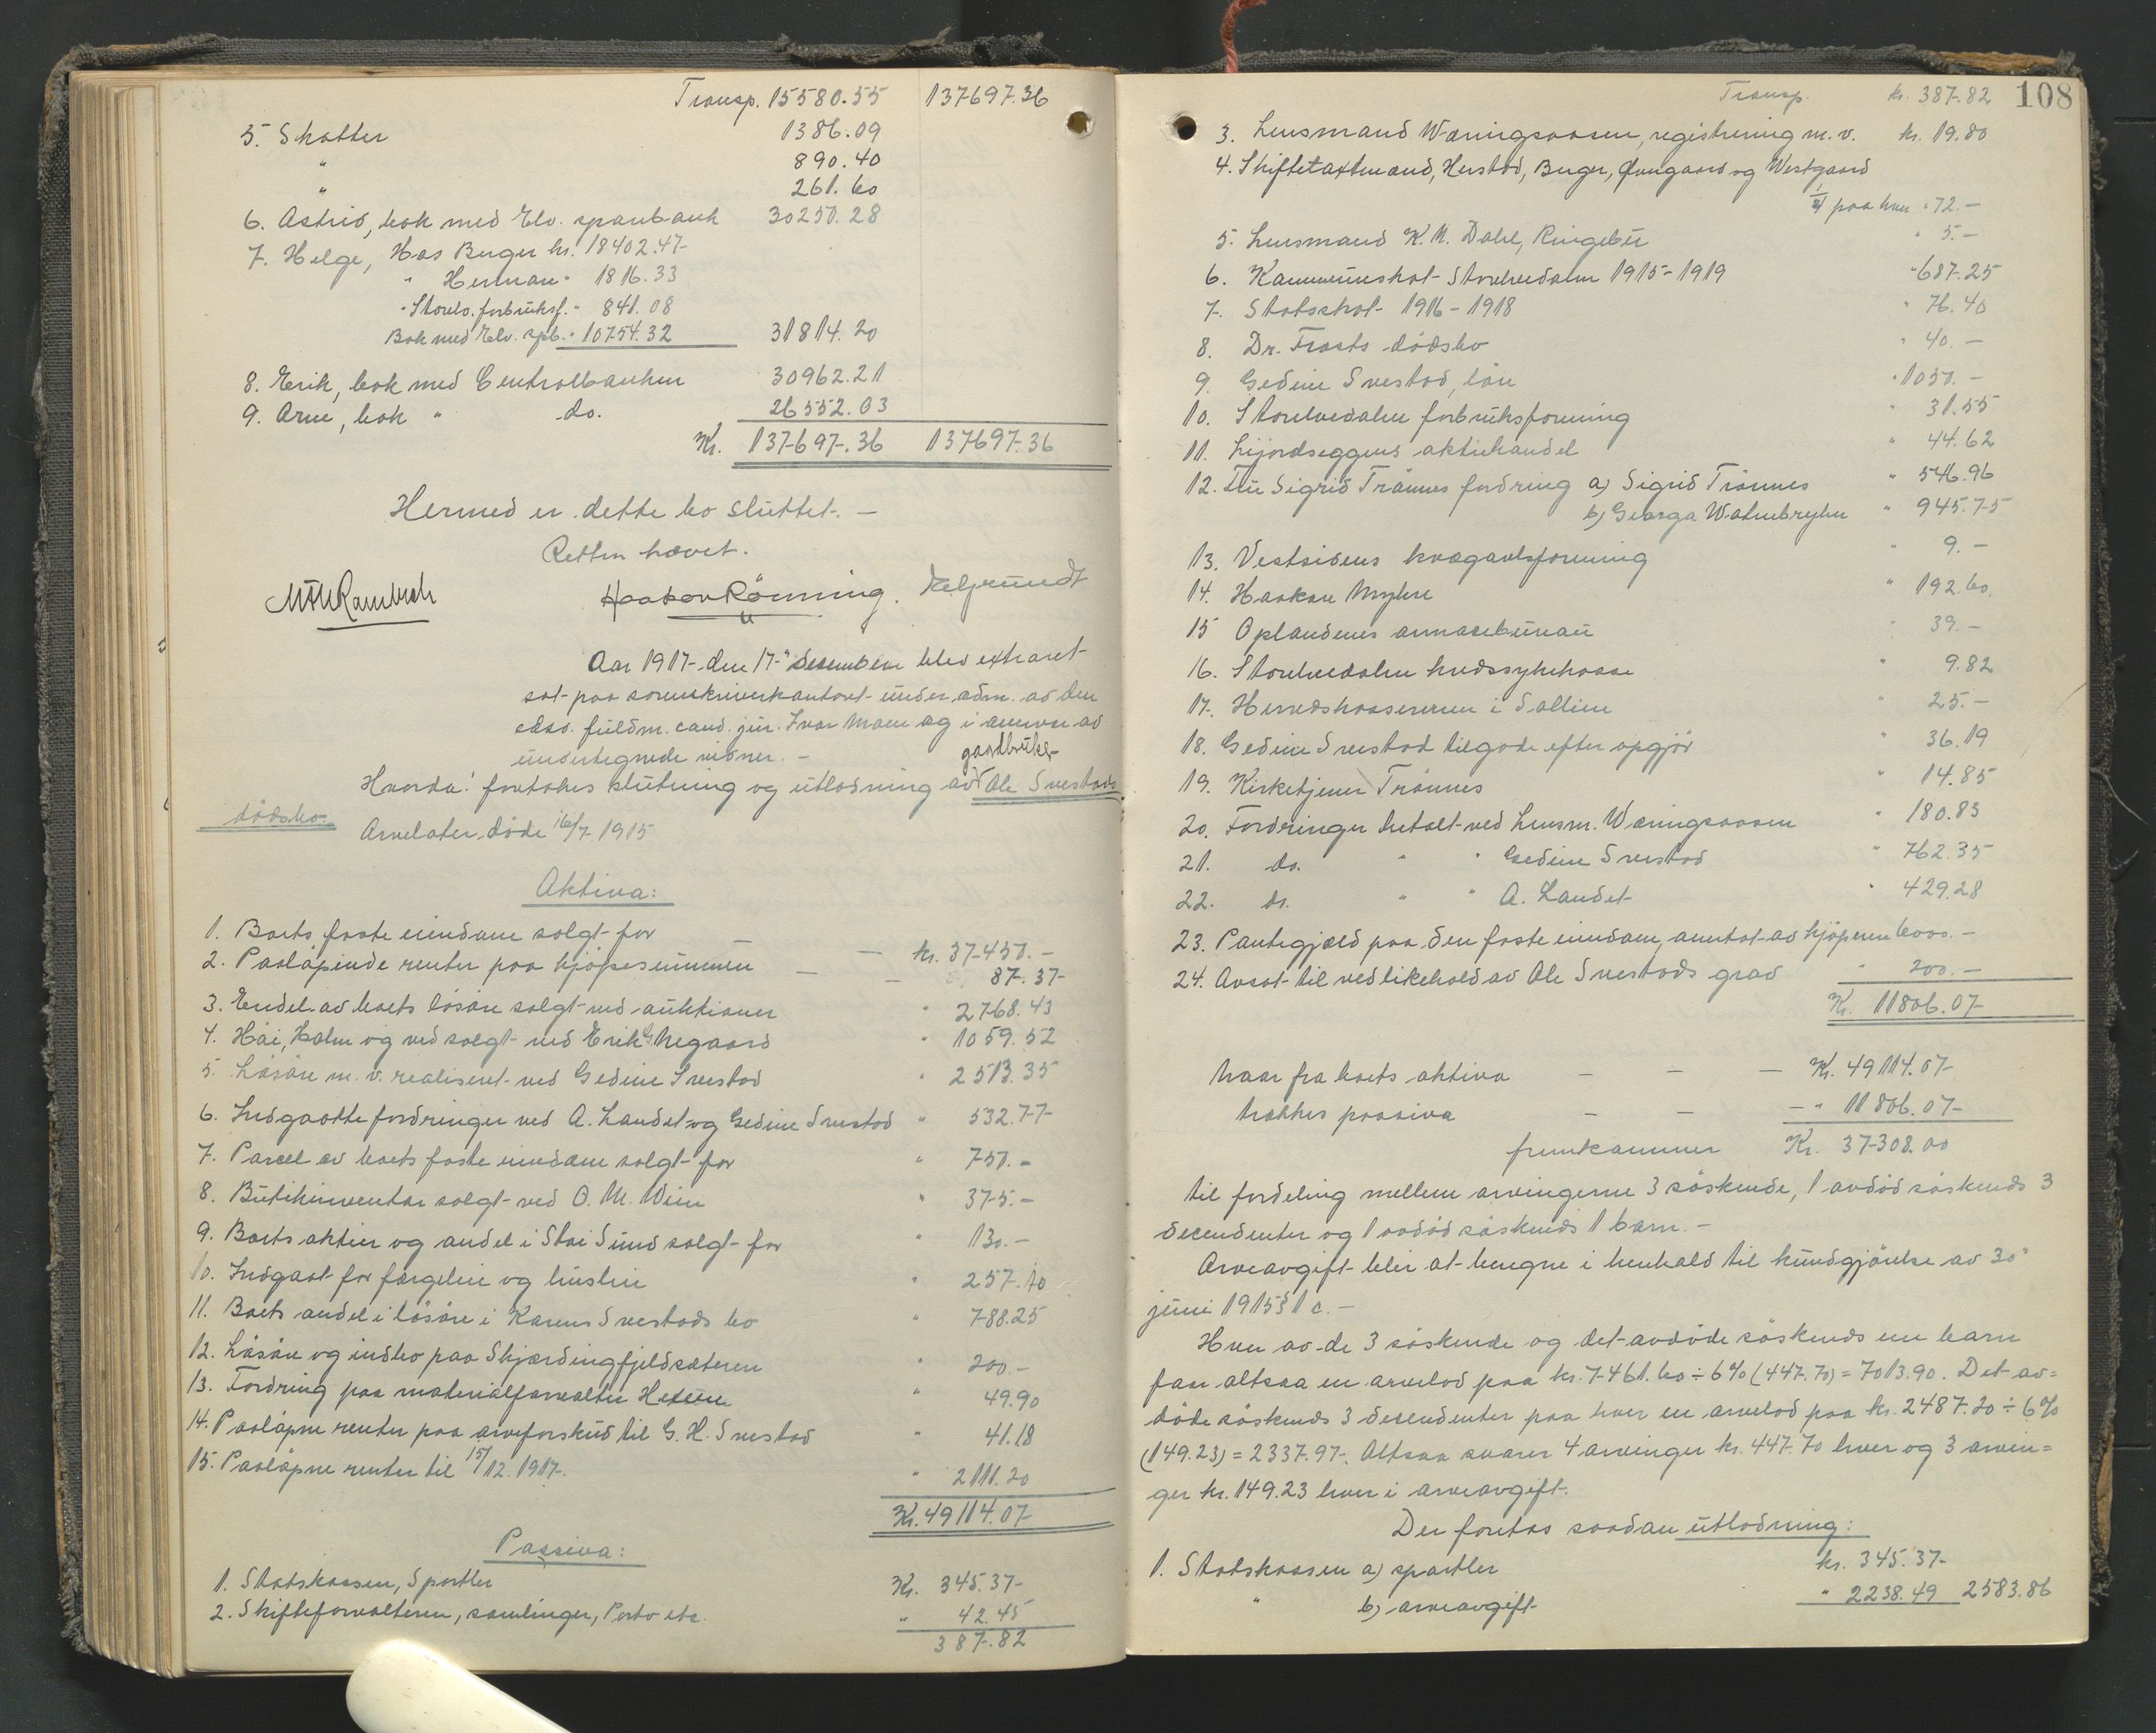 Transp. 15580.55 137697.36
5. Skatter 1386.09
" 890.40
" 261.60
6. Astrid, bok med Elv. sparebank 30250.28
7. Helge, Hos Berger kr. 18402.47
" Herman " 1816.33
" Storelv. forbruksf. " 841.08
Bok med Elv. spb. " 10754.32 31814.20
8. Erik, bok med Centralbanken 30962.21
9. Arne, bok " do. 26552.03
Kr. 137697.36 137697.36
Hermed er dette bo sluttet. —
Retten hævet.
Haakon Rönning.
Aar 1917 den 17de desember blev extraret
sat paa sorenskriverkontoret under adm. av den
edsv. fuldm. cand. jur. Ivar Moen og i nærvær av
undertegnede vidner. —
gaardbruker
Hvorda! foretokes slutning og utlodning av Ole Svestads
dödsbo.
Arvelater döde 16/7 1915
Aktiva:
1. Boets faste eiendom solgt for — kr. 37450.—
2. Paalöpende renter paa kjöpesummen — — 87.37
3. Endel av boets lösöre solgt ved auktioner " 2768.43
4. Höi, Halm og ved solgt ved Erik G. Negaard " 1059.52
5. Lösöre m. v. realiseret ved Gedine Svestad " 2513.35
6. Indgaatte fordringer ved A. Landet og Gedine Svestad " 532.77
7. Parcel av boets faste eiendom solgt for " 750.—
8. Butikinventar solgt ved O. M. Wiin " 375.—
9. Boets aktier og andel i Stai Sund solgt for " 130.—
10. Indgaat for færgeleie og husleie " 257.10
11. Boets andel i lösöre i Karens Svestads bo " 788.25
12. Lösöre og indbo paa Skjærdingfjeldsæteren " 200.—
13. Fordring paa materialforvalter " 49.90
14. Paalöpne renter paa arveforskud til G. H. Svestad " 41.18
15. Paalöpne renter til 15/12. 1917. " 2111.20
Kr. 49114.07
Passiva:
1. Statskassen, Sportler Kr. 345.37
2. Skifteforvalteren, samlinger, Porto etc. " 42.45
387.82
Transp. kr. 387.82 108
3. Lensmand Wæringsaasen, registrering m. v. kr. 19.80
4. Skiftetaxtmænd, Herstad, Berger, Öungaard og Westgaard
1/4 paa hver " 72.—
5. Lensmand K. N. Dahl, Ringebu " 5.—
6. Kommuneskat Storelvedalen 1915-1919 " 687.25
7. Statsskat 1916-1918 " 76.40
8. Dr. Frosts dödsbo " 40.—
9. Gedine Svestad, lön " 1050.—
10. Storelvedalen forbruksforening " 31.55
11. Lijordseggens aktiehandel " 44.62
12. Fru Sigrid Trönnes fordring a) Sigrid Trönnes " 546.96
b) Georga Watnebryhn " 945.75
13. Vestsidens kvægavlsforening " 9.—
14. Haakon Myhre " 192.60.
15 Oplandenes annoncebureau " 39.—
16. Storelvedalen kredssykekasse " 9.82
17. Herredskassereren i Sollien " 25.—
18. Gedine Svestad tilgode efter opgjör " 36.19
19. Kirketjener Trönnes " 14.85
20. Fordringer betalt ved Lensm. Wæringsaasen " 180.83
21. do. " " Gedine Svestad " 762.35
22. do. " " A. Landet " 429.28
23. Pantegjæld paa den faste eiendom, overtat av kjöperen 6000.—
24. Avsat til vedlikehold av Ole Svestads grav " 200.—
Kr. 11806.07
Naar fra boets aktiva — — — Kr. 49114.07
trækkes passiva — — — " 11806.07
fremkommer Kr. 37308.00
til fordeling mellem arvingerne 3 söskende, 1 avdöd söskends 3
decendenter og 1 avdöd söskends 1 barn. —
Arveavgift blir at beregne i henhold til kundgjörelse av 30te
juni 1915 § 1 c. —
Hver av de 3 söskende og det avdöde söskends ene barn
faar altsaa en arvelod paa kr. 7461.60 ÷ 6% (447.70) = 7013.90. Det av=
döde söskends 3 decendenter faar hver en arvelod paa kr. 2487.20 ÷ 6%
(149.23) = 2337.97. Altsaa svarer 4 arvinger kr. 447.70 hver og 3 arvin=
ger kr. 149.23 hver i arveavgift.
Der foretas saadan utlodning:
1. Statskassen a) sportler kr. 345.37
" b) arveavgift " 2238.49 2583.86